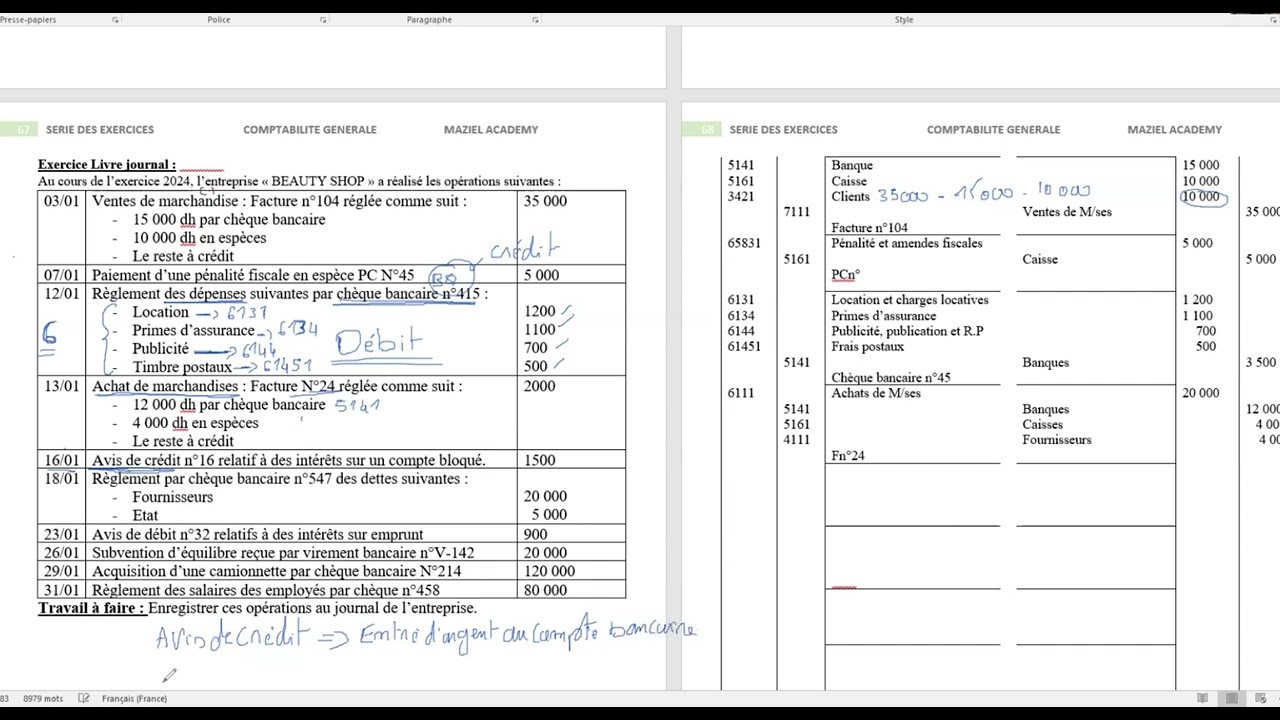 Presse-papiers Police Paragraphe Style
67 SERIE DES EXERCICES COMPTABILITE GENERALE MAZIEL ACADEMY
Exercice Livre journal :
Au cours de l'exercice 2024, l'entreprise « BEAUTY SHOP » a réalisé les opérations suivantes :
03/01 Ventes de marchandise : Facture n°104 réglée comme suit : 35 000
- 15 000 dh par chèque bancaire
- 10 000 dh en espèces
- Le reste à crédit
crédit
07/01 Paiement d'une pénalité fiscale en espèce PC N°45 5 000
BQ
12/01 Règlement des dépenses suivantes par chèque bancaire n°415 :
- Location → 6131 1200
- Primes d'assurance → 6134 1100
6 Débit
- Publicité → 6144 700
- Timbre postaux → 61451 500
13/01 Achat de marchandises : Facture N°24 réglée comme suit : 2000
- 12 000 dh par chèque bancaire 5141
- 4 000 dh en espèces
- Le reste à crédit
16/01 Avis de crédit n°16 relatif à des intérêts sur un compte bloqué. 1500
18/01 Règlement par chèque bancaire n°547 des dettes suivantes :
- Fournisseurs 20 000
- Etat 5 000
23/01 Avis de débit n°32 relatifs à des intérêts sur emprunt 900
26/01 Subvention d'équilibre reçue par virement bancaire n°V-142 20 000
29/01 Acquisition d'une camionnette par chèque bancaire N°214 120 000
31/01 Règlement des salaires des employés par chèque n°458 80 000
Travail à faire : Enregistrer ces opérations au journal de l'entreprise.
Avis de crédit => Entré d'argent au compte bancaire
68 SERIE DES EXERCICES COMPTABILITE GENERALE MAZIEL ACADEMY
5141 Banque 15 000
5161 Caisse 10 000
3421 Clients 35000 - 15000 - 10 000 10 000
7111 Ventes de M/ses 35 000
Facture n°104
65831 Pénalité et amendes fiscales 5 000
5161 Caisse 5 000
PCn°
6131 Location et charges locatives 1 200
6134 Primes d'assurance 1 100
6144 Publicité, publication et R.P 700
61451 Frais postaux 500
5141 Banques 3 500
Chèque bancaire n°45
6111 Achats de M/ses 20 000
5141 Banques 12 000
5161 Caisses 4 00
4111 Fournisseurs 4 00
Fn°24
83 8979 mots Français (France)